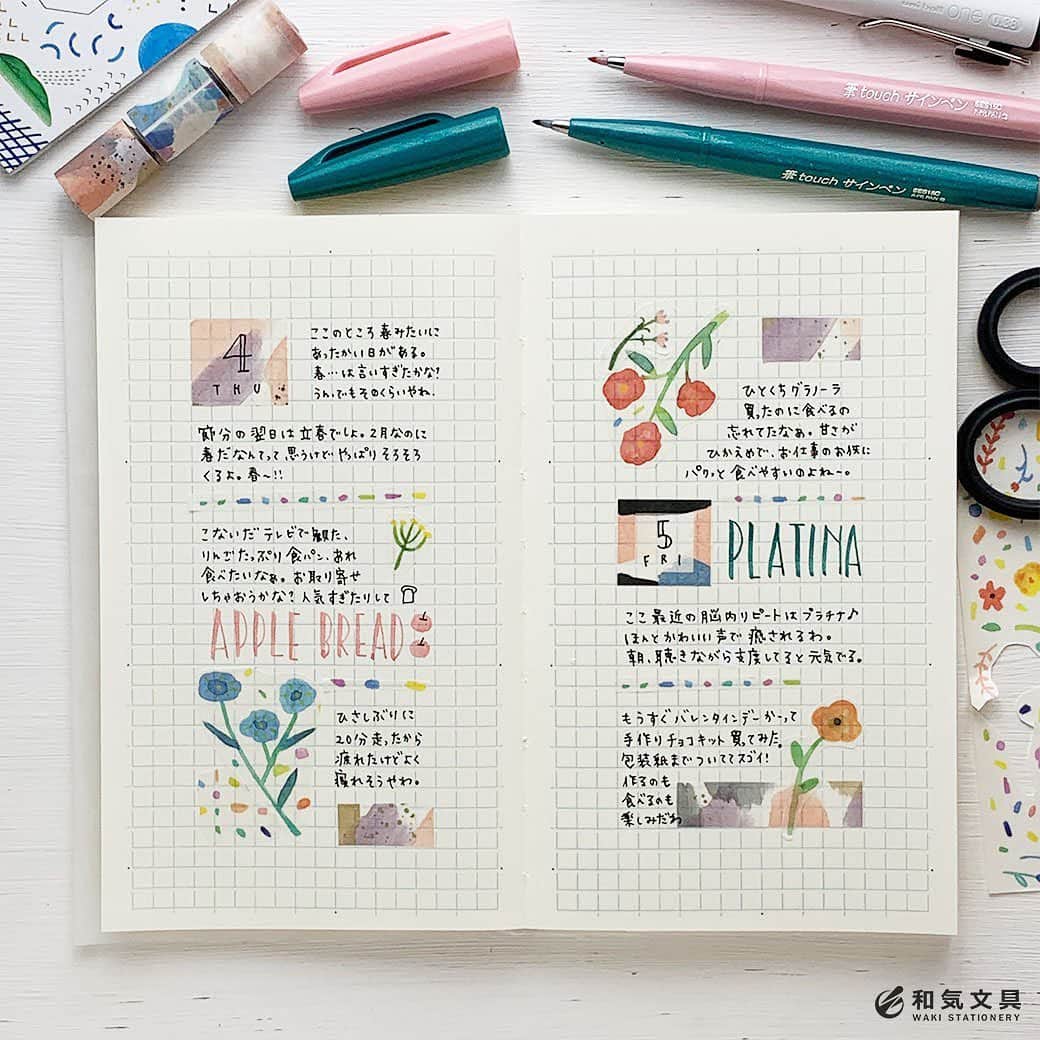 uni-ball one 0.38
筆touch サインペン
筆touch サインペン
4
THU
ここのところ春みたいに
あったかい日がある。
春…は言いすぎたかな?
うん、でもそのくらいやね。
節分の翌日は立春でしょ。2月なのに
春だなんてって思うけど やっぱりそろそろ
くるよ。春〜!!
こないだ テレビで観た、
りんごたっぷり食パン、あれ
食べたいなぁ。お取り寄せ
しちゃおうかな?人気すぎたりして
APPLE BREAD
ひさしぶりに
20分走ったから
疲れたけどよく
寝れそうやわ。
ひとくちグラノーラ
買ったのに食べるの
忘れてたなぁ。甘さが
ひかえめで、お仕事のお供に
パクッと食べやすいのよね〜。
5
FRI
PLATINA
ここ最近の脳内リピートはプラチナ♪
ほんとかわいい声で 癒されるわ。
朝、聴きながら支度してると元気でる。
もうすぐバレンタインデーかーって
手作りチョコキット買ってみた。
包装紙までついててスゴイ!
作るのも
食べるのも
楽しみだわ
和気文具
WAKI STATIONERY